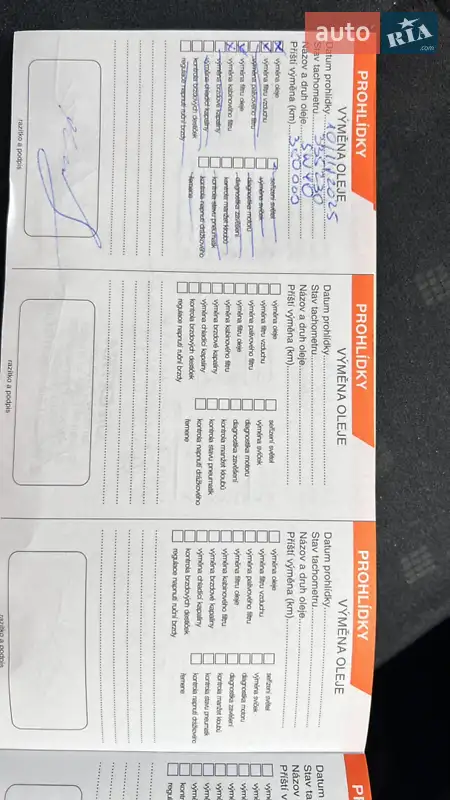 auto RIA.com
PROHLÍDKY
VÝMĚNA OLEJE
Datum prohlídky 10/11/2025
Stav tachometru
Názov a druh oleje 5W40
Příští výměna (km)
výměna oleje
výměna filtru vzduchu
výměna palivového filtru
výměna filtru oleje
výměna kabinového filtru
výměna brzdové kapaliny
výměna chladicí kapaliny
kontrola brzdových destiček
regulace napnutí ruční brzdy
seřízení světel
výměna svíček
diagnostika motoru
diagnostika zavěšení
kontrola manžet kloubů
kontrola stavu pneumatik
kontrola napnutí drážkového
řemene
razítko a podpis
PROHLÍDKY
VÝMĚNA OLEJE
Datum prohlídky
Stav tachometru
Názov a druh oleje
Příští výměna (km)
výměna oleje
výměna filtru vzduchu
výměna palivového filtru
výměna filtru oleje
výměna kabinového filtru
výměna brzdové kapaliny
výměna chladicí kapaliny
kontrola brzdových destiček
regulace napnutí ruční brzdy
seřízení světel
výměna svíček
diagnostika motoru
diagnostika zavěšení
kontrola manžet kloubů
kontrola stavu pneumatik
kontrola napnutí drážkového
řemene
razítko a podpis
PROHLÍDKY
VÝMĚNA OLEJE
Datum prohlídky
Stav tachometru
Názov a druh oleje
Příští výměna (km)
výměna oleje
výměna filtru vzduchu
výměna palivového filtru
výměna filtru oleje
výměna kabinového filtru
výměna brzdové kapaliny
výměna chladicí kapaliny
kontrola brzdových destiček
regulace napnutí ruční brzdy
seřízení světel
výměna svíček
diagnostika motoru
diagnostika zavěšení
kontrola manžet kloubů
kontrola stavu pneumatik
kontrola napnutí drážkového
řemene
razítko a podpis